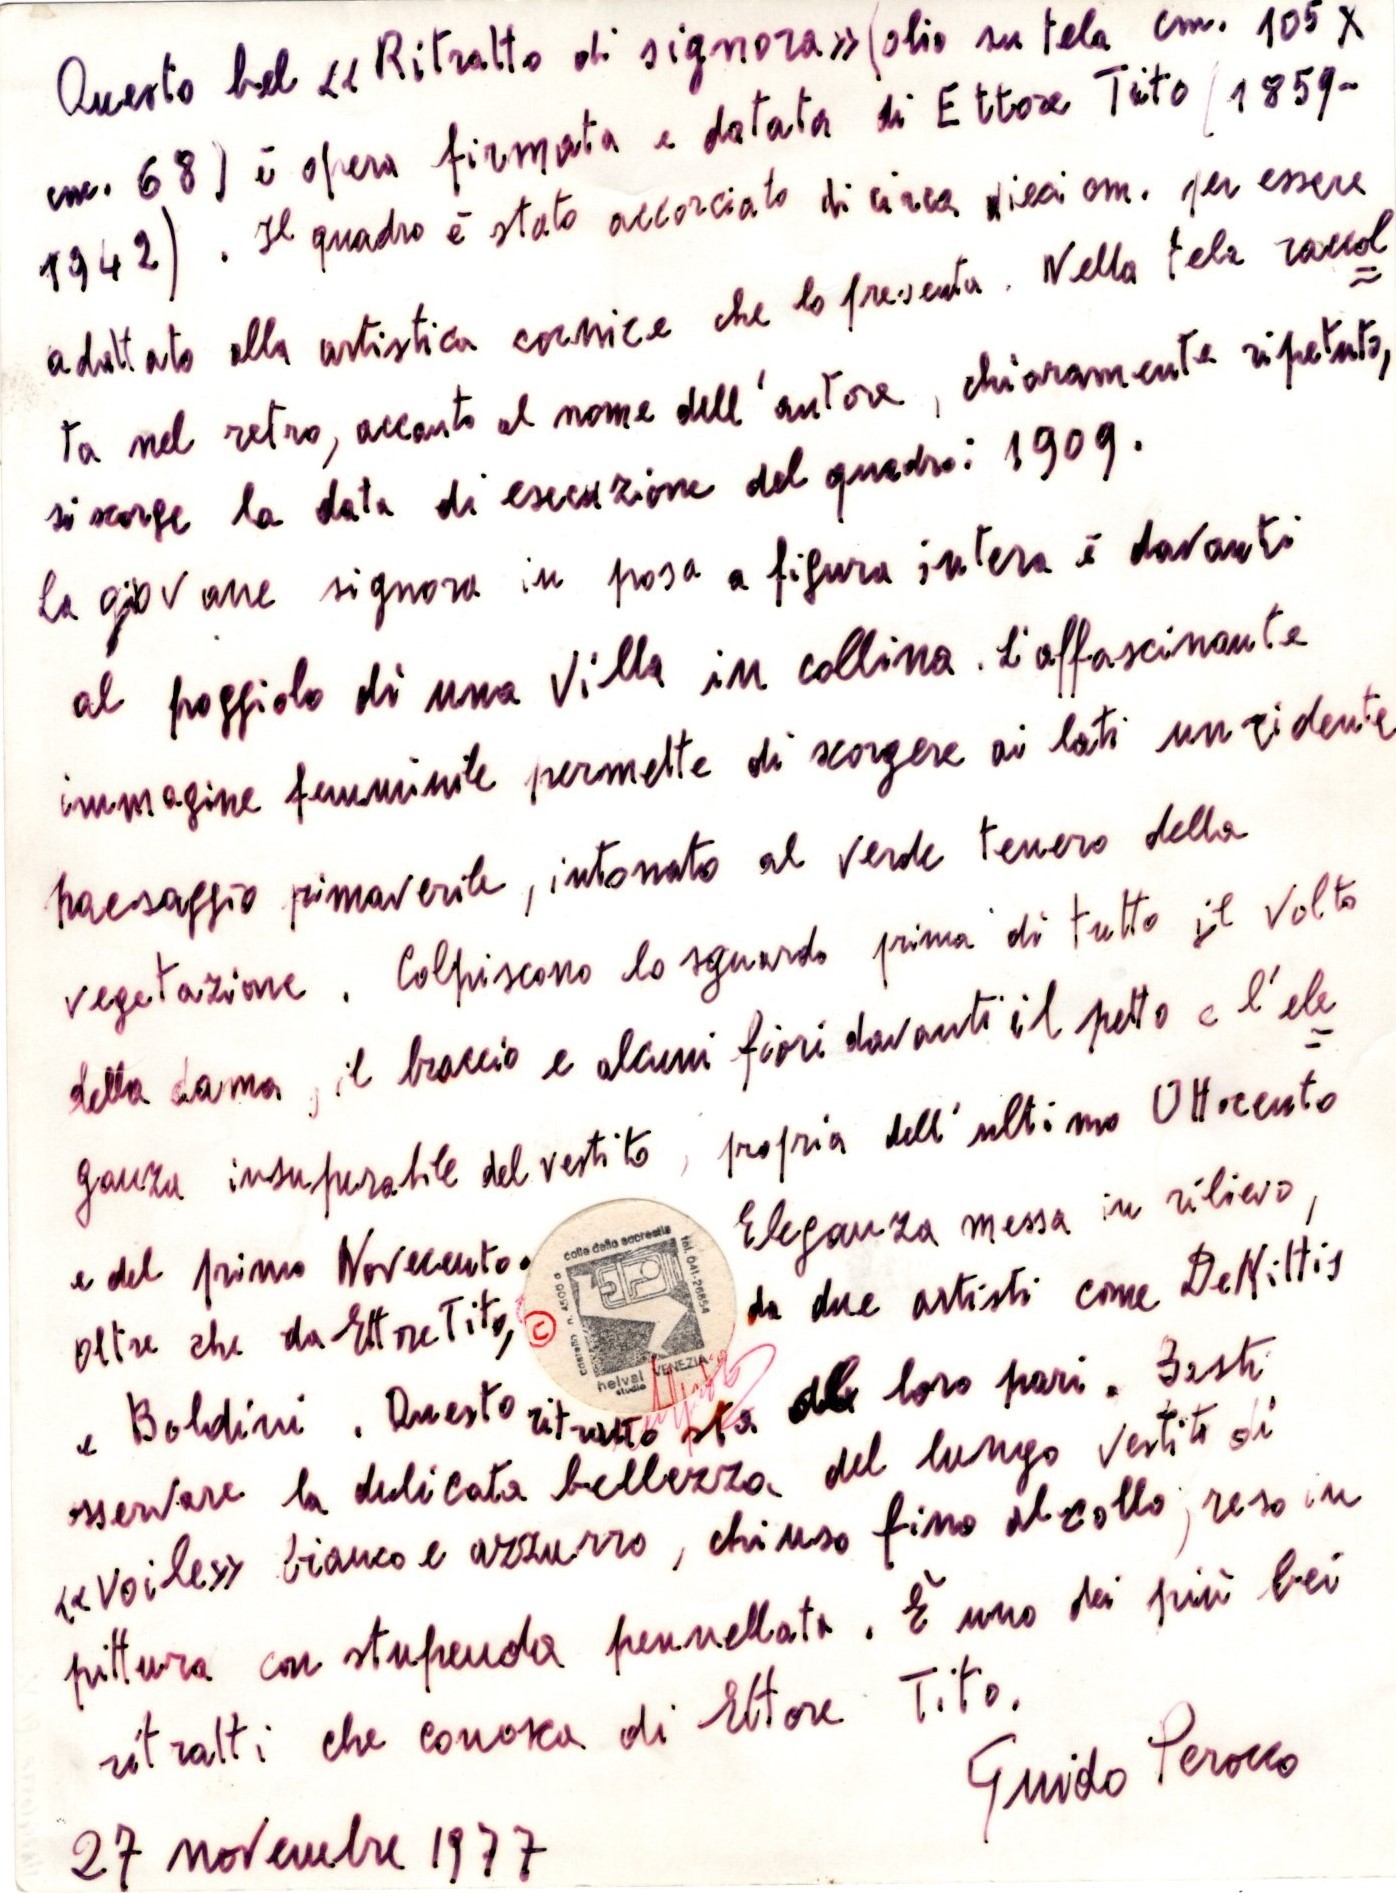 Questo bel «Ritratto di signora» (olio su tela cm. 105 x
cm. 68) è opera firmata e datata di Ettore Tito (1859-
1942). Il quadro è stato accorciato di circa dieci cm. per essere
adattato alla artistica cornice che lo presenta. Nella tela raccol=
ta nel retro, accanto al nome dell'autore, chiaramente ripetuto,
si scorge la data di esecuzione del quadro: 1909.
La giovane signora in posa a figura intera è davanti
al poggiolo di una villa in collina. L'affascinante
immagine femminile permette di scorgere ai lati un ridente
paesaggio primaverile, intonato al verde tenero della
vegetazione. Colpiscono lo sguardo prima di tutto il volto
della dama, il braccio e alcuni fiori davanti il petto e l'ele=
ganza insuperabile del vestito, propria dell'ultimo Ottocento
e del primo Novecento. Eleganza messa in rilievo,
oltre che da Ettore Tito, da due artisti come De Nittis
e Boldini. Questo ritratto sta al loro pari. Basti
osservare la delicata bellezza del lungo vestito di
«voile» bianco e azzurro, chiuso fino al collo, reso in
pittura con stupenda pennellata. È uno dei più bei
ritratti che conosca di Ettore Tito.
Guido Perocco
27 novembre 1977
©
calle della sacrestia
tel. 041-26854
castello n. 4500 a
helval VENEZIA
studio